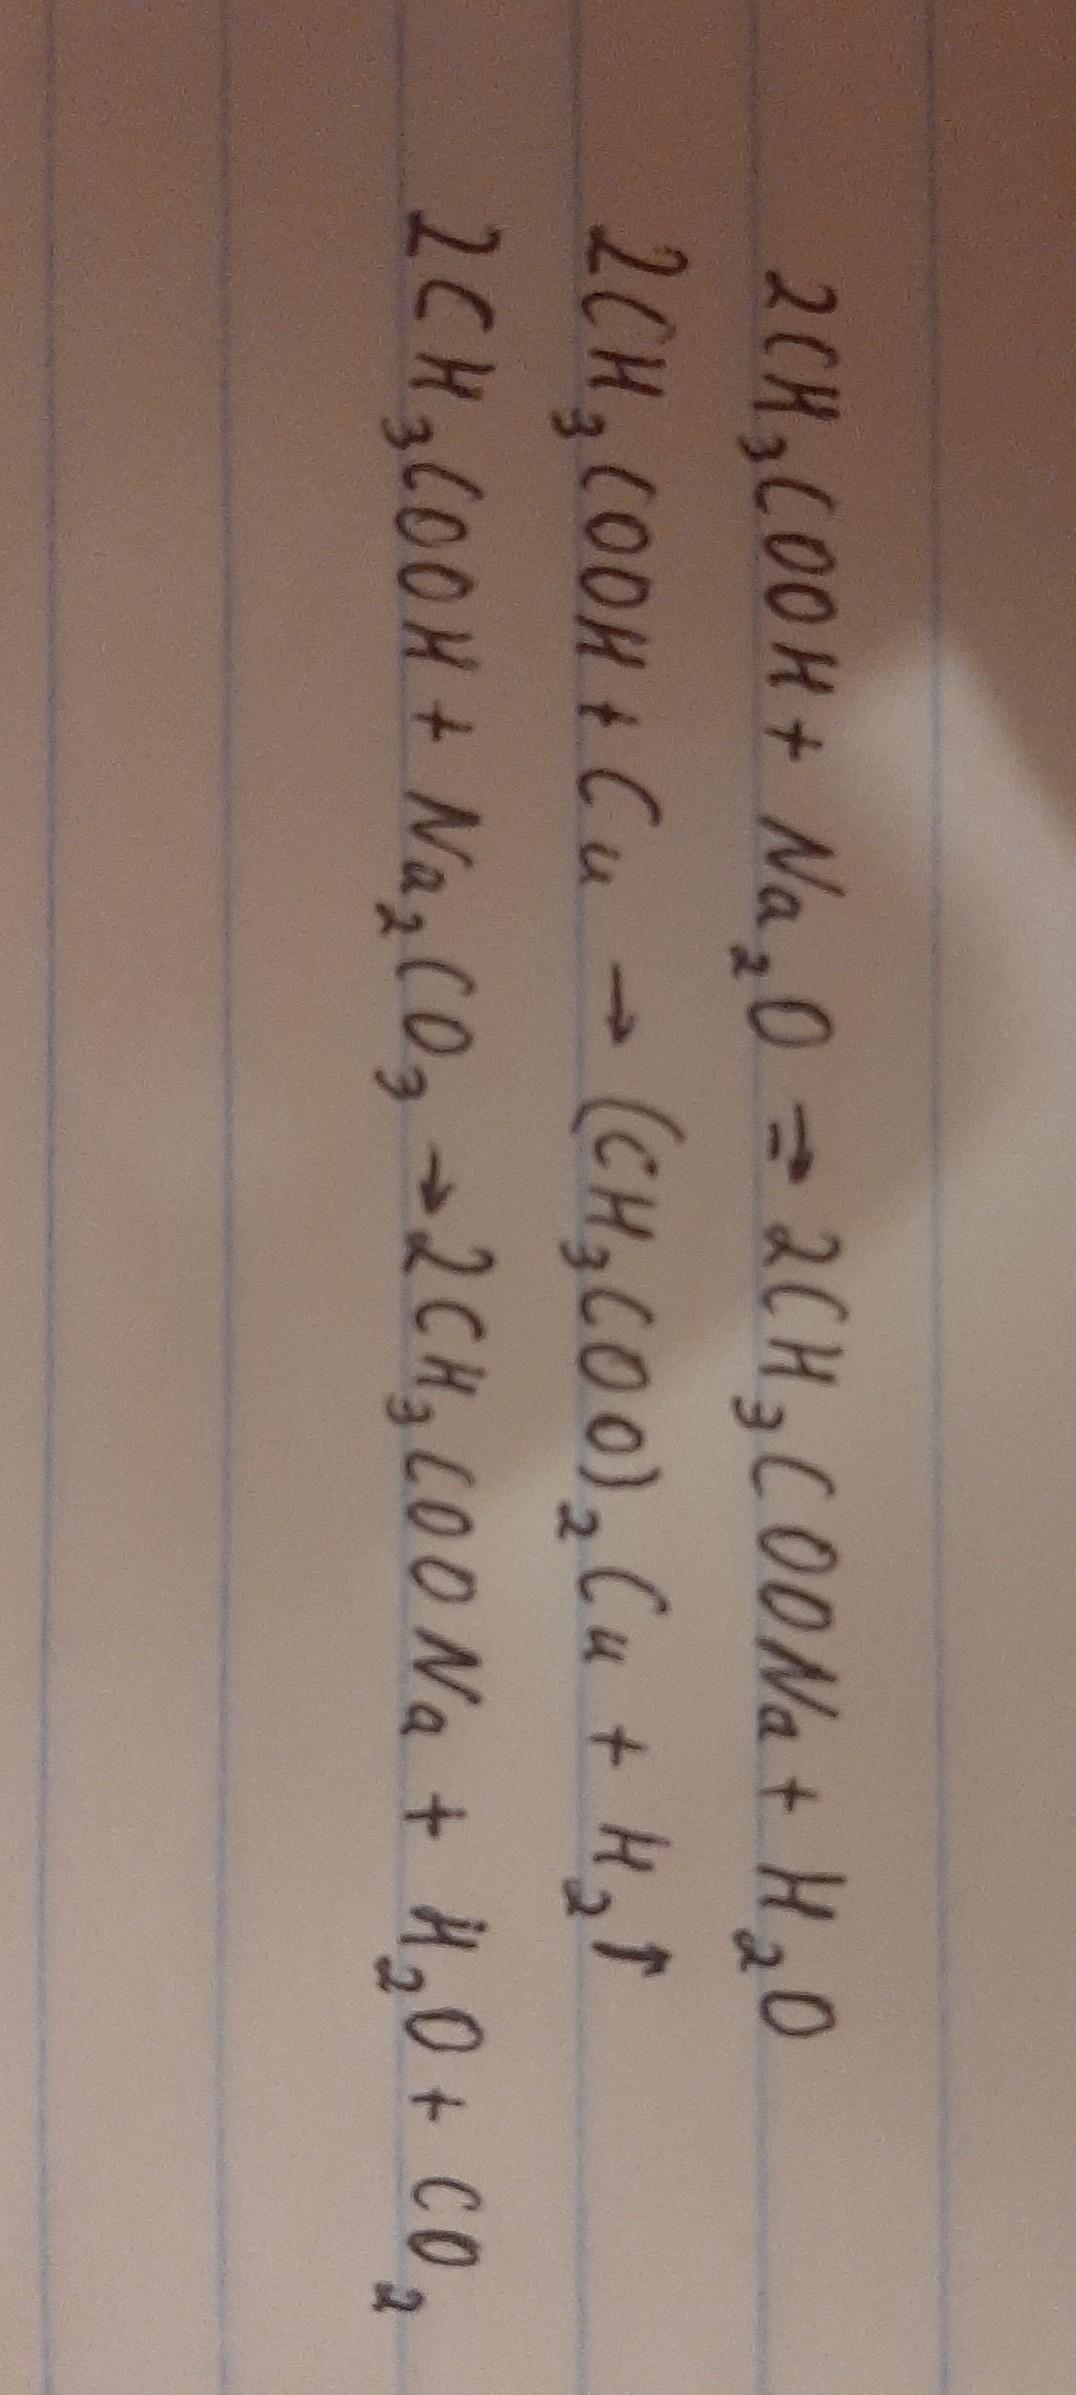 2CH₃COOH + Na₂O → 2CH₃COONa + H₂O
2CH₃COOH + Cu → (CH₃COO)₂Cu + H₂↑
2CH₃COOH + Na₂CO₃ → 2CH₃COONa + H₂O + CO₂